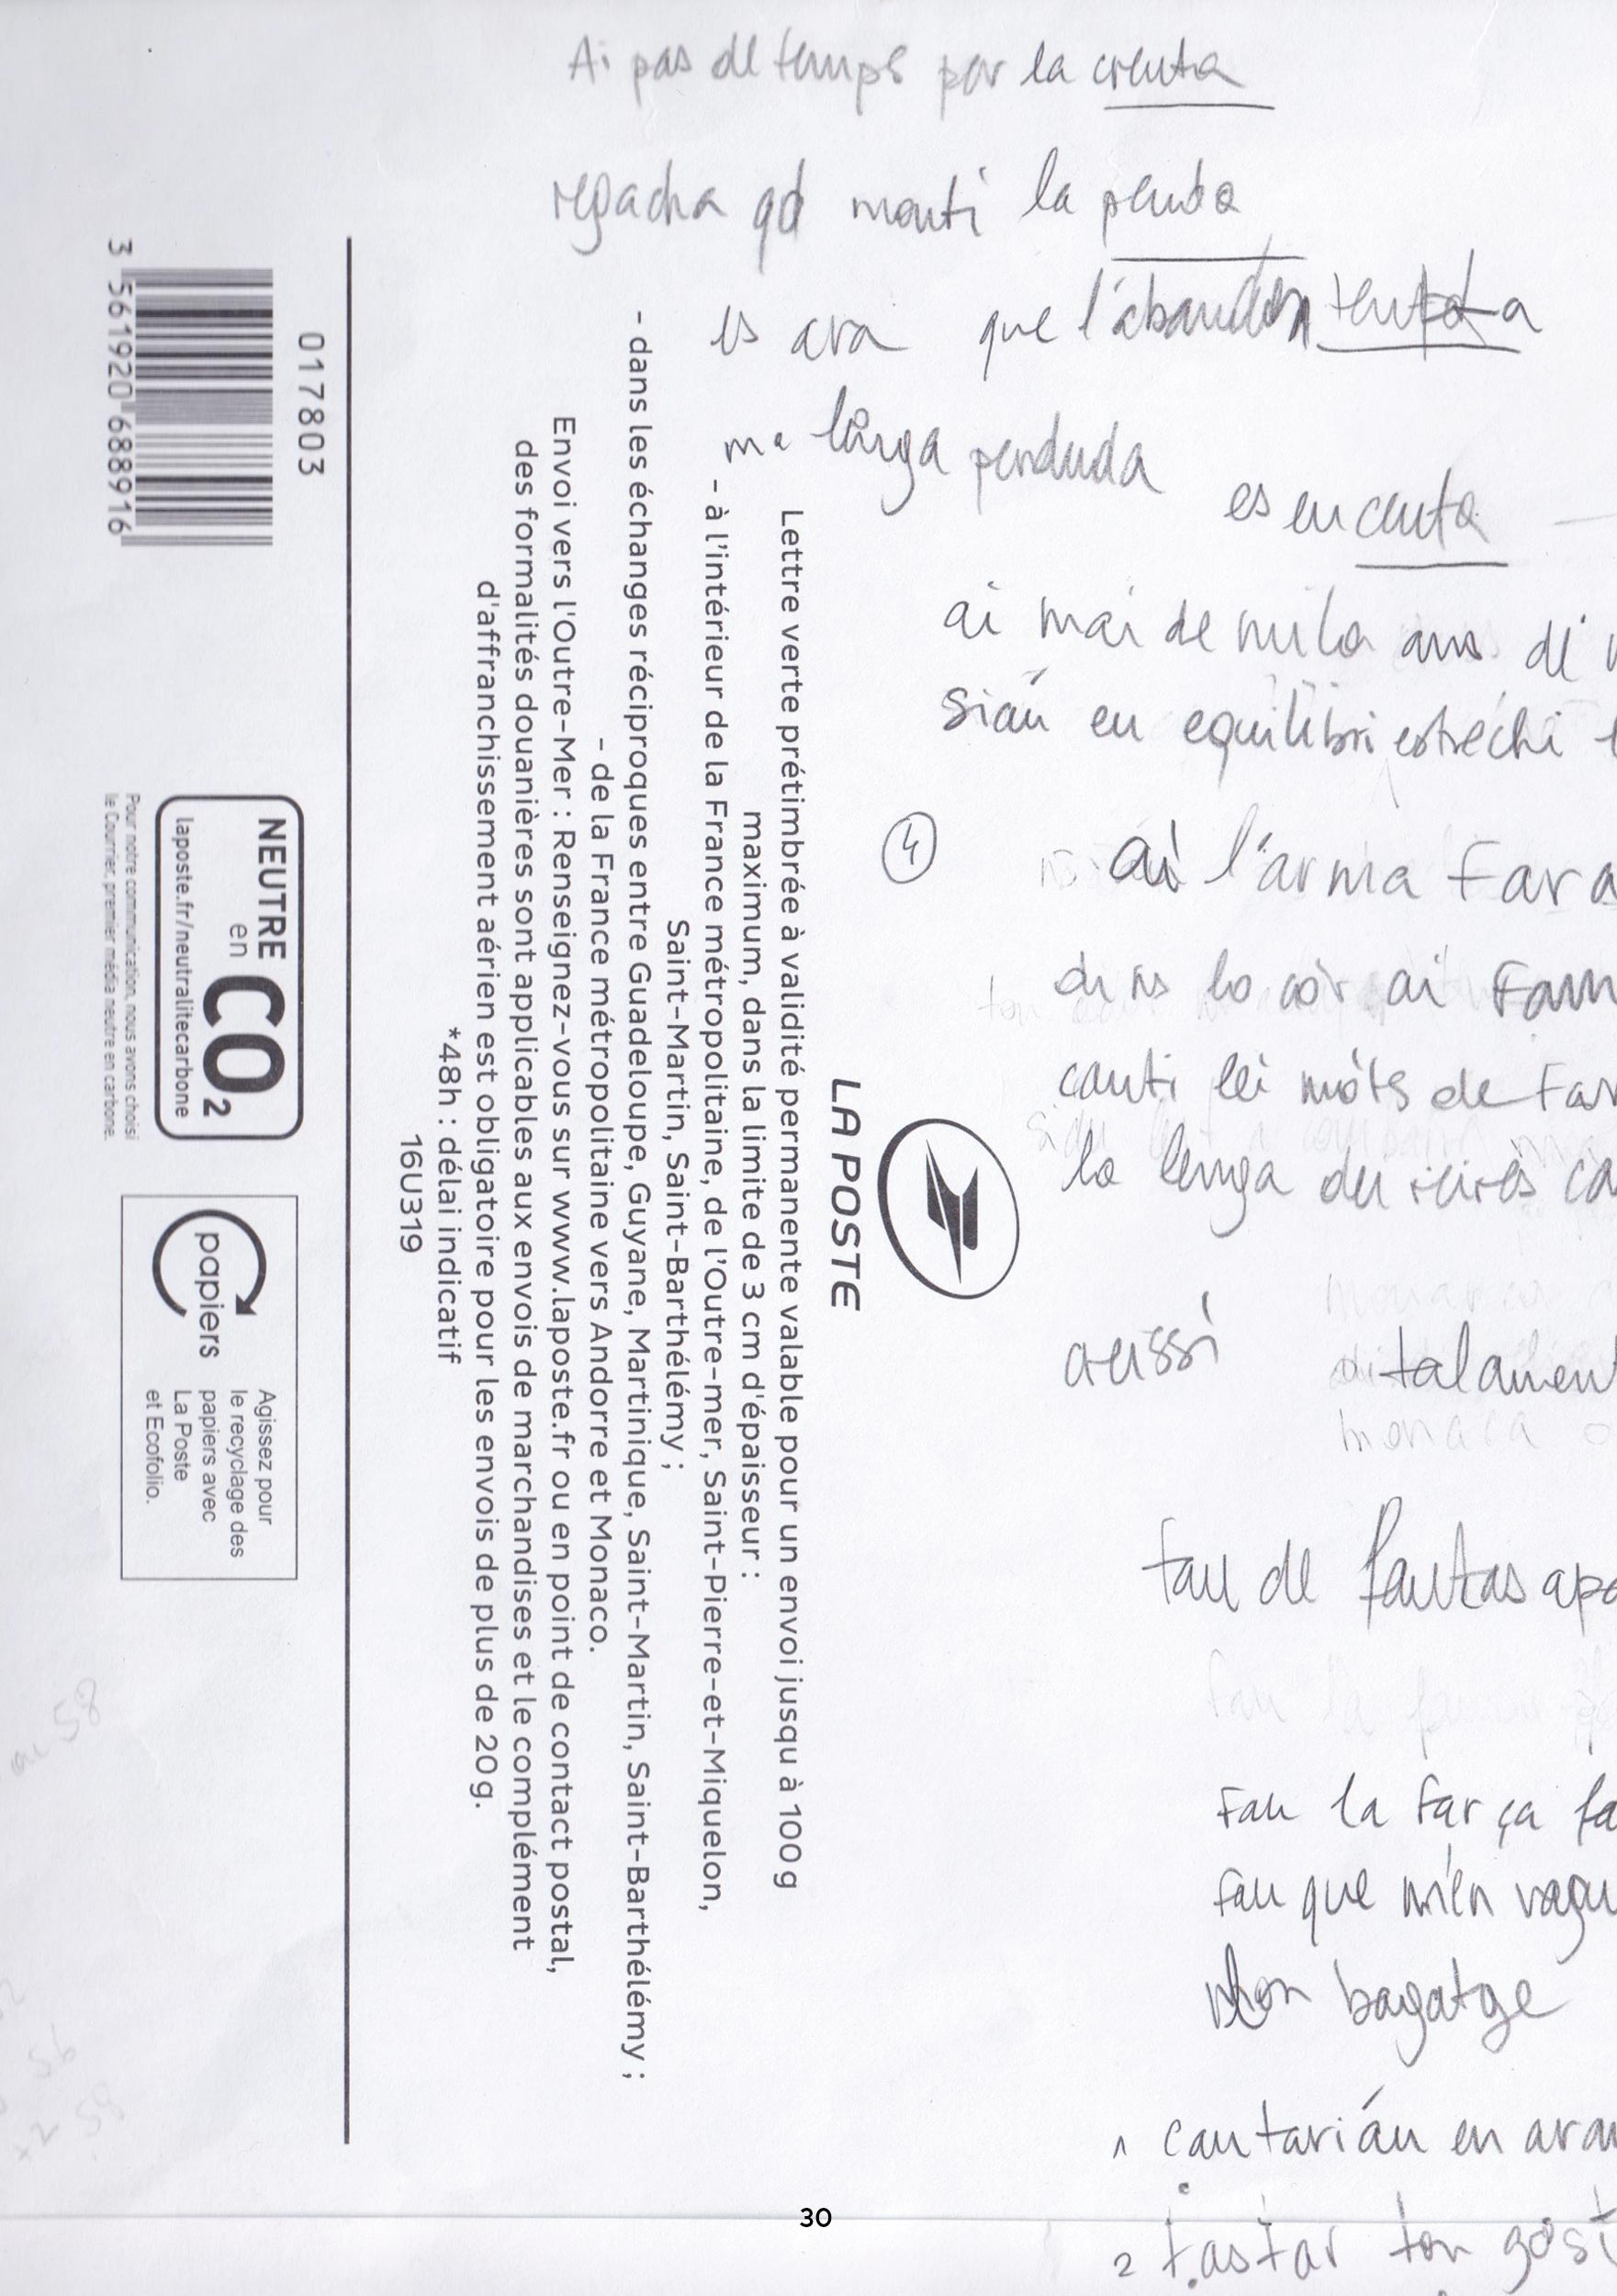 Ai pas de temps per la crenta
regacha qd monti la penta
es ara que l'abandon tenta
ma lenga perduda
es encenta
ai mai de mila ans d'
sián en equilibri estrechi
4
ai l'arma
dins lo còr ai
canti lei mòts de
la lenga dei reires
aussi
talament
fau de fautas
fau la farça
fau que m'en vagu
mon bagatge
1 cantarián en
2 tastar ton
LA POSTE
Lettre verte prétimbrée à validité permanente valable pour un envoi jusqu à 100 g
maximum, dans la limite de 3 cm d'épaisseur :
- à l'intérieur de la France métropolitaine, de l'Outre-mer, Saint-Pierre-et-Miquelon,
Saint-Martin, Saint-Barthélémy ;
- dans les échanges réciproques entre Guadeloupe, Guyane, Martinique, Saint-Martin, Saint-Barthélémy ;
- de la France métropolitaine vers Andorre et Monaco.
Envoi vers l'Outre-Mer : Renseignez-vous sur www.laposte.fr ou en point de contact postal,
des formalités douanières sont applicables aux envois de marchandises et le complément
d'affranchissement aérien est obligatoire pour les envois de plus de 20 g.
*48h : délai indicatif
16U319
017803
3 561920 688916
NEUTRE
en
CO2
laposte.fr/neutralitecarbone
Pour notre communication, nous avons choisi
le Courrier, premier média neutre en carbone.
papiers
Agissez pour
le recyclage des
papiers avec
La Poste
et Ecofolio.
58
56
x2 58
30